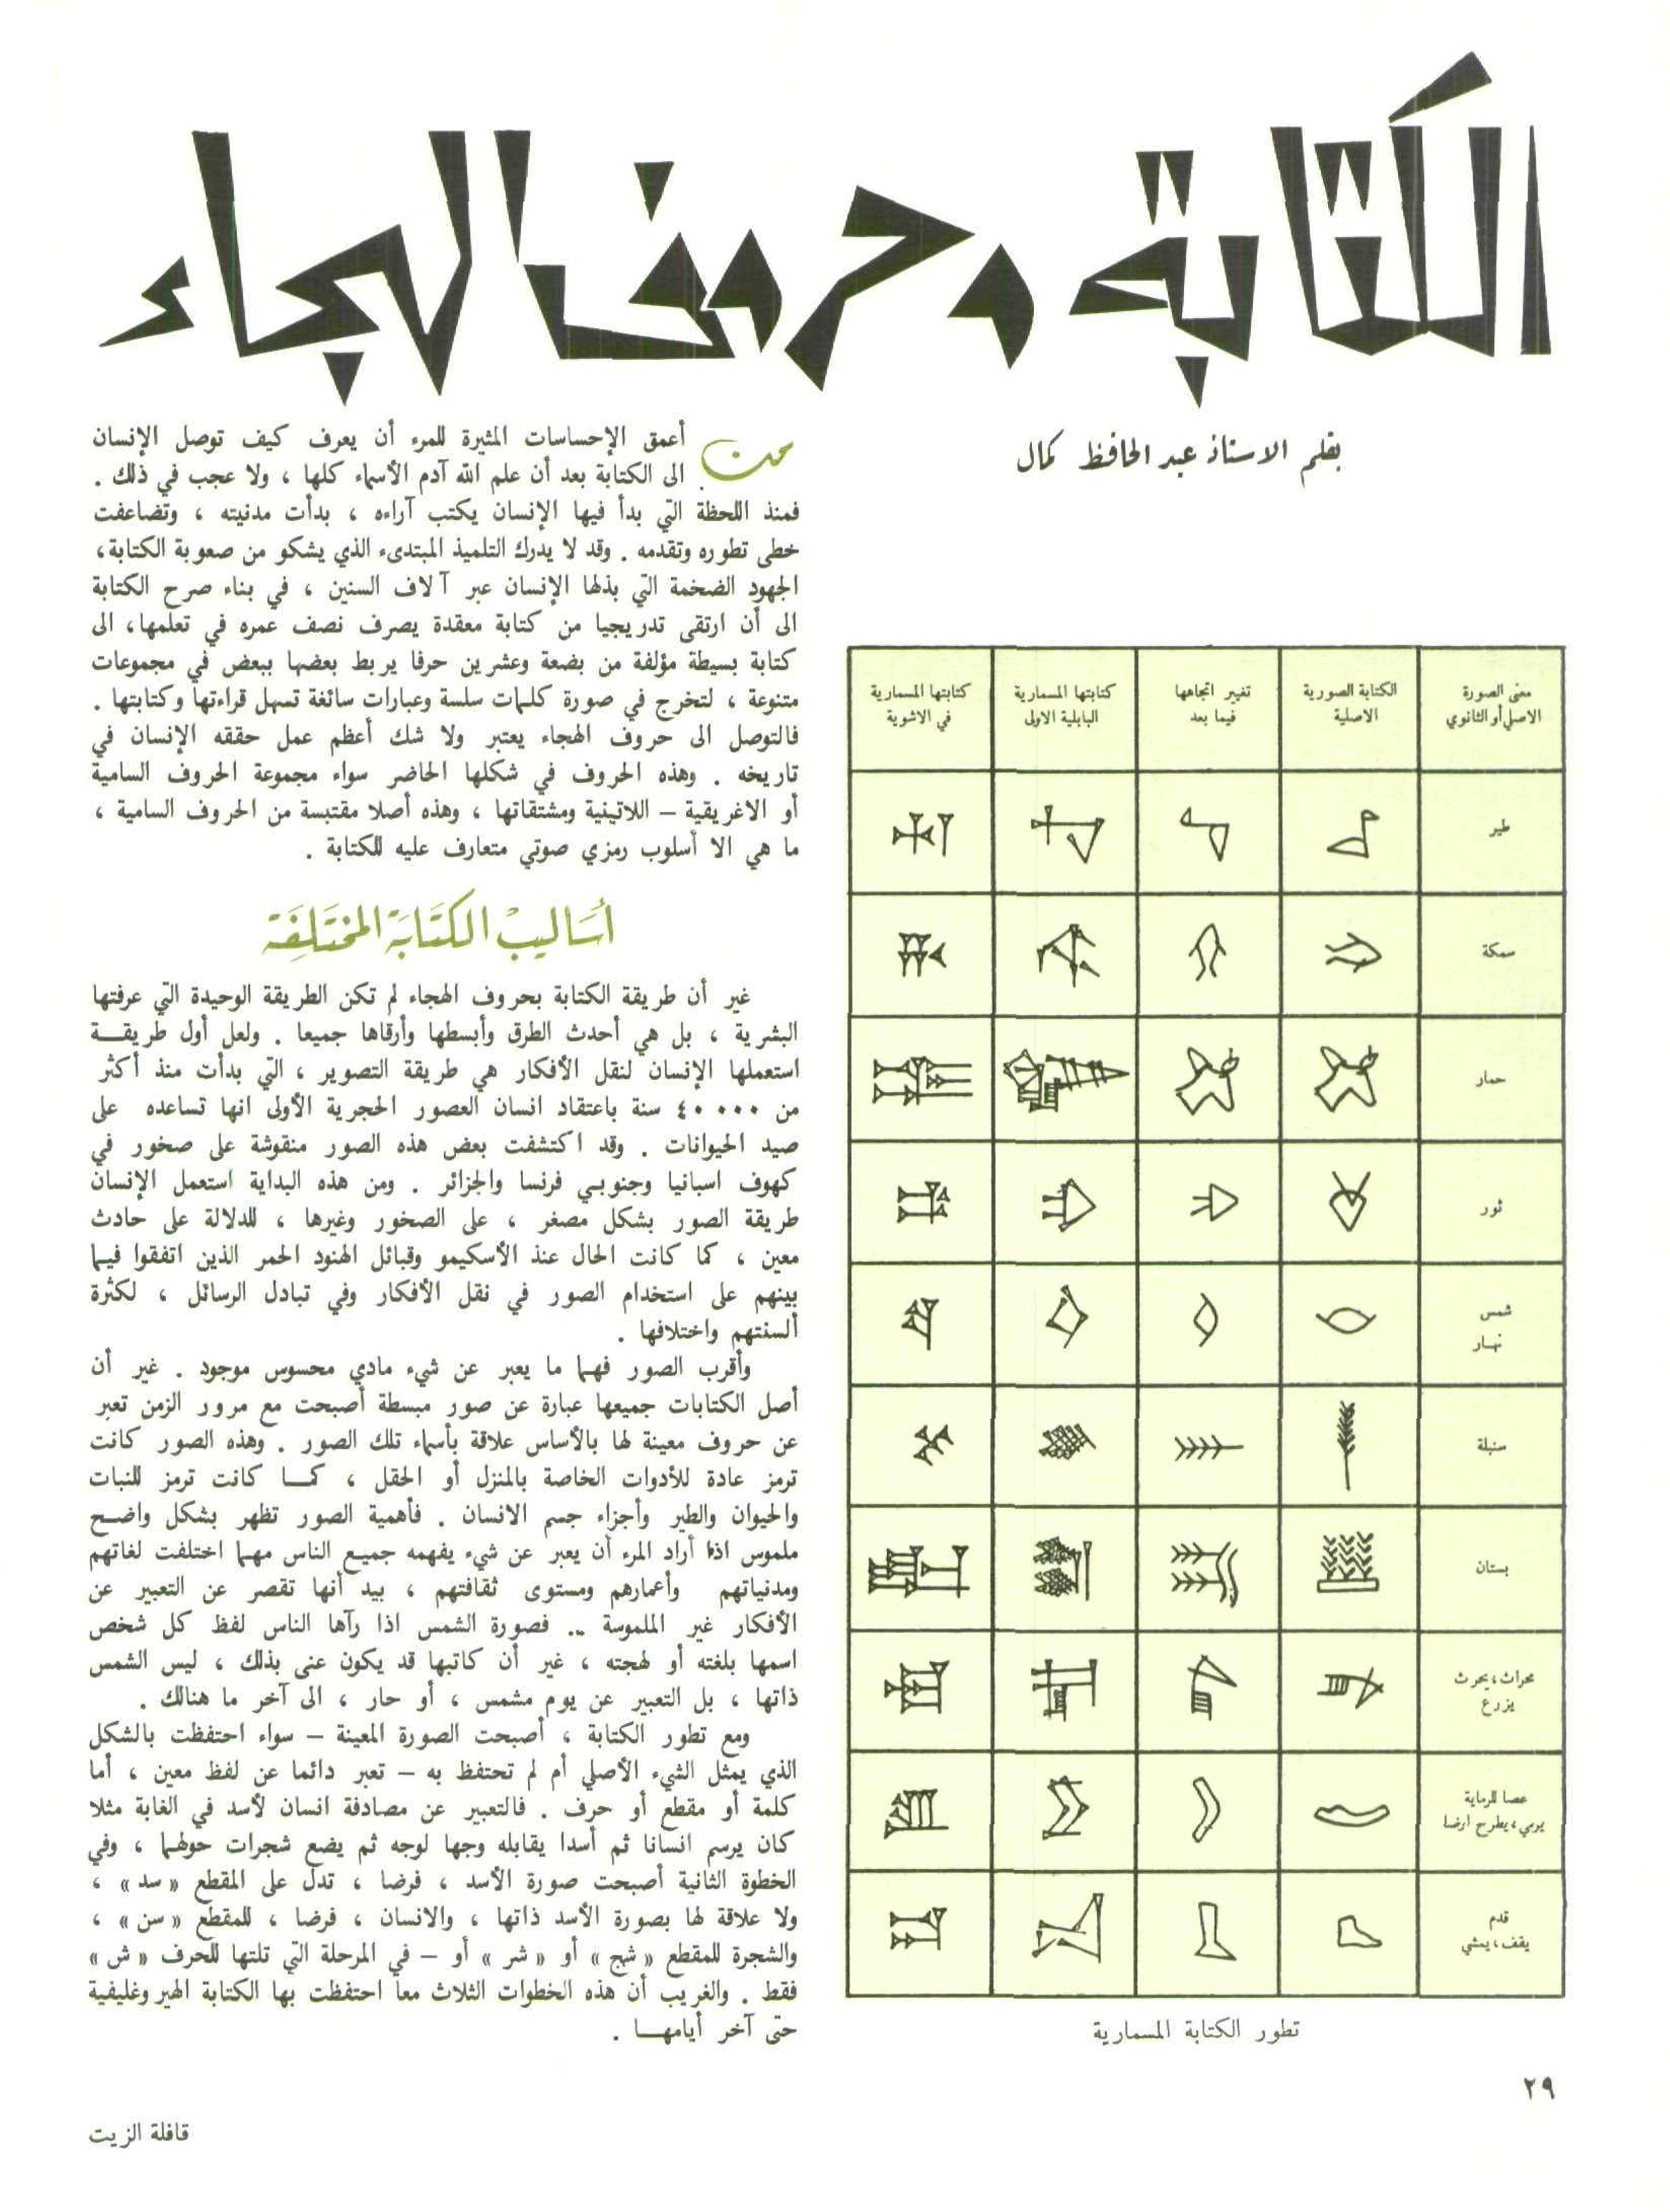 الكتابة وحروف الهجاء
بقلم الاستاذ عبد الحافظ كمال
من أعمق الإحساسات المثيرة للمرء أن يعرف كيف توصل الإنسان
الى الكتابة بعد أن علم الله آدم الأسماء كلها ، ولا عجب في ذلك .
فمنذ اللحظة التي بدأ فيها الإنسان يكتب آراءه ، بدأت مدنيته ، وتضاعفت
خطى تطوره وتقدمه . وقد لا يدرك التلميذ المبتدىء الذي يشكو من صعوبة الكتابة ،
الجهود الضخمة التي بذلها الإنسان عبر آلاف السنين ، في بناء صرح الكتابة
الى أن ارتقى تدريجيا من كتابة معقدة يصرف نصف عمره في تعلمها ، الى
كتابة بسيطة مؤلفة من بضعة وعشرين حرفا يربط بعضها ببعض في مجموعات
متنوعة ، لتخرج في صورة كلمات سلسة وعبارات سائغة تسهل قراءتها وكتابتها .
فالتوصل الى حروف الهجاء يعتبر ولا شك أعظم عمل حققه الإنسان في
تاريخه . وهذه الحروف في شكلها الحاضر سواء مجموعة الحروف السامية
أو الاغريقية – اللاتينية ومشتقاتها ، وهذه أصلا مقتبسة من الحروف السامية ،
ما هي الا أسلوب رمزي صوتي متعارف عليه للكتابة .
أساليب الكتابة المختلفة
غير أن طريقة الكتابة بحروف الهجاء لم تكن الطريقة الوحيدة التي عرفتها
البشرية ، بل هي أحدث الطرق وأبسطها وأرقاها جميعا . ولعل أول طريقــة
استعملها الإنسان لنقل الأفكار هي طريقة التصوير ، التي بدأت منذ أكثر
من ٤٠٠٠٠ سنة باعتقاد انسان العصور الحجرية الأولى انها تساعده على
صيد الحيوانات . وقد اكتشفت بعض هذه الصور منقوشة على صخور في
كهوف اسبانيا وجنوبي فرنسا والجزائر . ومن هذه البداية استعمل الإنسان
طريقة الصور بشكل مصغر ، على الصخور وغيرها ، للدلالة على حادث
معين ، كما كانت الحال عند الأسكيمو وقبائل الهنود الحمر الذين اتفقوا فيما
بينهم على استخدام الصور في نقل الأفكار وفي تبادل الرسائل ، لكثرة
ألسنتهم واختلافها .
وأقرب الصور فهما ما يعبر عن شيء مادي محسوس موجود . غير أن
أصل الكتابات جميعها عبارة عن صور مبسطة أصبحت مع مرور الزمن تعبر
عن حروف معينة لها بالأساس علاقة بأسماء تلك الصور . وهذه الصور كانت
ترمز عادة للأدوات الخاصة بالمنزل أو الحقل ، كمــا كانت ترمز للنبات
والحيوان والطير وأجزاء جسم الانسان . فأهمية الصور تظهر بشكل واضـح
ملموس اذا أراد المرء أن يعبر عن شيء يفهمه جميـع الناس مهما اختلفت لغاتهم
ومدنياتهم وأعمارهم ومستوى ثقافتهم ، بيد أنها تقصر عن التعبير عن
الأفكار غير الملموسة .. فصورة الشمس اذا رآها الناس لفظ كل شخص
اسمها بلغته أو لهجته ، غير أن كاتبها قد يكون عنى بذلك ، ليس الشمس
ذاتها ، بل التعبير عن يوم مشمس ، أو حار ، الى آخر ما هنالك .
ومع تطور الكتابة ، أصبحت الصورة المعينة – سواء احتفظت بالشكل
الذي يمثل الشيء الأصلي أم لم تحتفظ به – تعبر دائما عن لفظ معين ، أما
كلمة أو مقطع أو حرف . فالتعبير عن مصادفة انسان لأسد في الغابة مثلا
كان يرسم انسانا ثم أسدا يقابله وجها لوجه ثم يضع شجرات حولهما ، وفي
الخطوة الثانية أصبحت صورة الأسد ، فرضا ، تدل على المقطع « سد » ،
ولا علاقة لها بصورة الأسد ذاتها ، والانسان ، فرضا ، للمقطع « سن » ،
والشجرة للمقطع « شج » أو « شر » أو – في المرحلة التي تلتها للحرف « ش »
فقط . والغريب أن هذه الخطوات الثلاث معا احتفظت بها الكتابة الهيروغليفية
حتى آخر أيامهــا .
معنى الصورة
الاصلي أو الثانوي
الكتابة الصورية
الاصلية
تغيير اتجاهها
فيما بعد
كتابتها المسمارية
البابلية الاولى
كتابتها المسمارية
في الاشورية
طير
سمكة
حمار
ثور
شمس
نهار
سنبلة
بستان
محراث ، يحرث
يزرع
عصا للرماية
يرمي ، يطرح ارضا
قدم
يقف ، يمشي
تطور الكتابة المسمارية
٢٩
قافلة الزيت